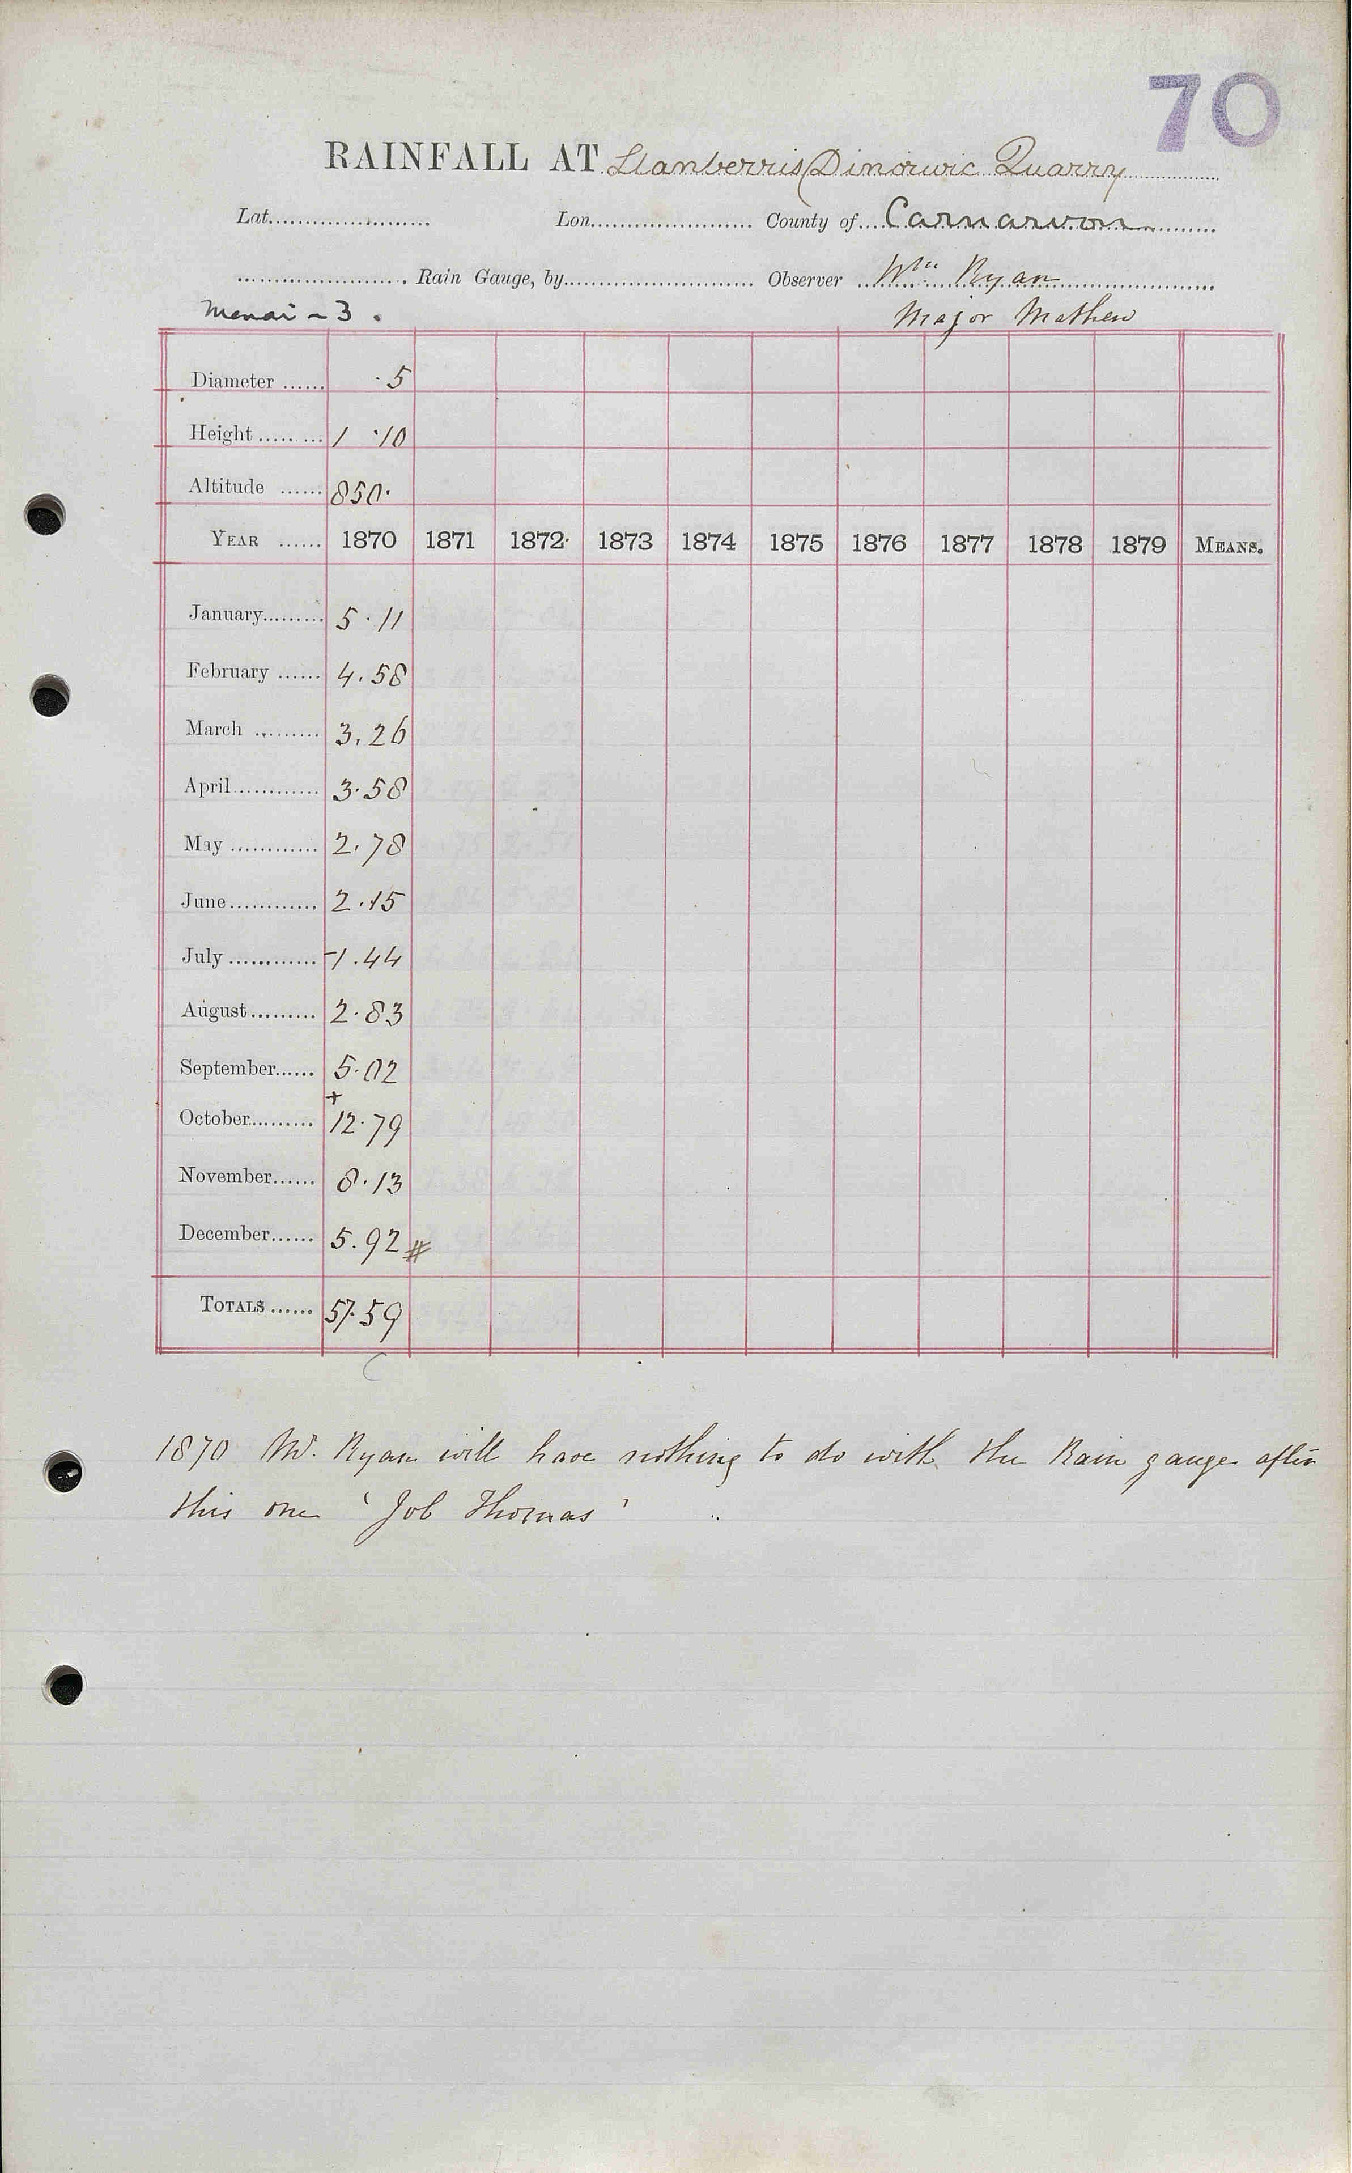 70
RAINFALL AT Llanberris (Dinorwic Quarry
Lat...................... Lon...................... County of.... Carnarvon
....................... Rain Gauge, by.......................... Observer ... Wm Ryan
Menai - 3 . Major Mathew
Diameter ...... ·5
Height ......... 1 ·10
Altitude ...... 850·
YEAR ...... 1870 1871 1872 1873 1874 1875 1876 1877 1878 1879 MEANS.
January......... 5·11
February ...... 4.58
March ......... 3.26
April............ 3·58
May ............ 2.78
June............ 2.15
July ............ -1.44
August......... 2·83
September...... 5·02
+
October......... 12·79
November...... 8·13
December...... 5.92 #
TOTALS ...... 57·59
1870 Mr. Ryan will have nothing to do with the Rain gauge after
this one 'Job Thomas'